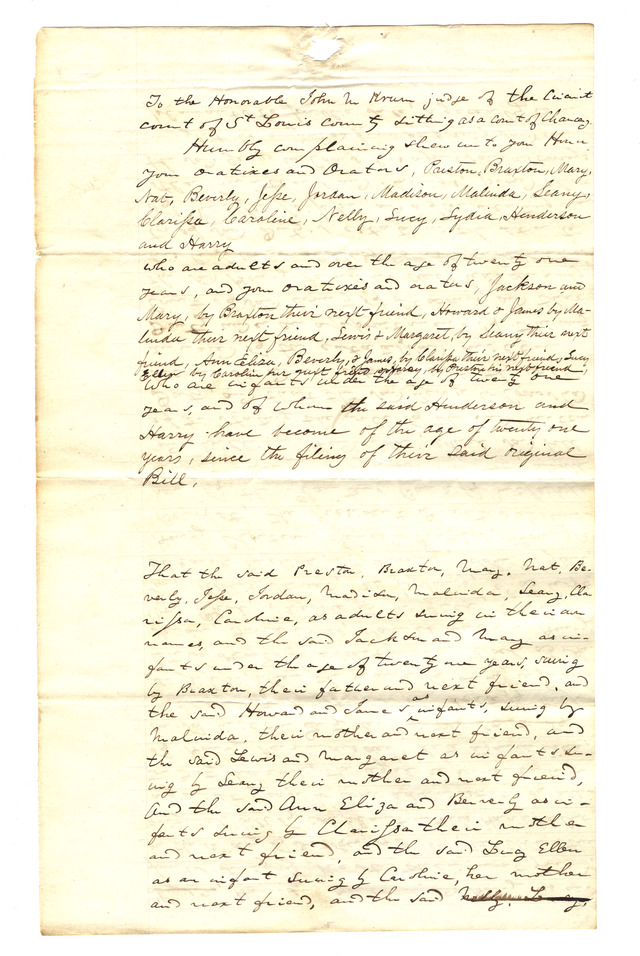 To the Honorable John M Krum judge of the Circuit
court of St Louis County sitting as a court of Chancery.
Humbly complaining shew unto your Honor
your oratixes and Orators, Preston, Braxton, Mary,
Nat, Beverly, Jesse, Jordan, Madison, Malinda, Seany,
Clarissa, Caroline, Nelly, Lucy, Lydia, Henderson
and Harry
who are adults and over the age of twenty one
years, and your oratixes and orators, Jackson and
Mary, by Braxton their next friend, Howard & James by Ma-
linda their next friend, Lewis & Margaret, by Seany their next
friend, Ann Eliza, Beverly, & James, by Clarissa their next friend, Lucy
Ellen by Caroline her next friend by Preston his next friend,
who are infants under the age of twenty one
years, and of whom the said Henderson and
Harry have become of the age of twenty one
years, since the filing of their said original
Bill,
That the said Preston, Braxton, Mary, Nat, Be-
verly, Jesse, Jordan, Madison, Malinda, Seany, Cla-
rissa, Caroline, as adults suing in their own
names, and the said Jackson and Mary as in-
fants under the age of twenty one years, suing
by Braxton, their father and next friend, and
the said Howard and James, as infants, suing by
Malinda, their mother and next friend, and
the said Lewis and Margaret as infants su-
ing by Seany their mother and next friend,
And the said Ann Eliza and Beverly as in-
fants suing by Clarissa their mother
and next friend, and the said Lucy Ellen
as an infant suing by Caroline, her mother
and next friend, and the said